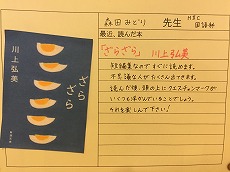 森田みどり 先生 HSC 国語科
最近、読んだ本
「ざらざら」 川上弘美
短編集なのですぐに読めます。
不思議な人がたくさん出てきます。
読んだ後、頭の上にクエスチョンマークが
いくつも浮かんでいることでしょう。
それを楽しんで下さい!
ざらざら
川上弘美